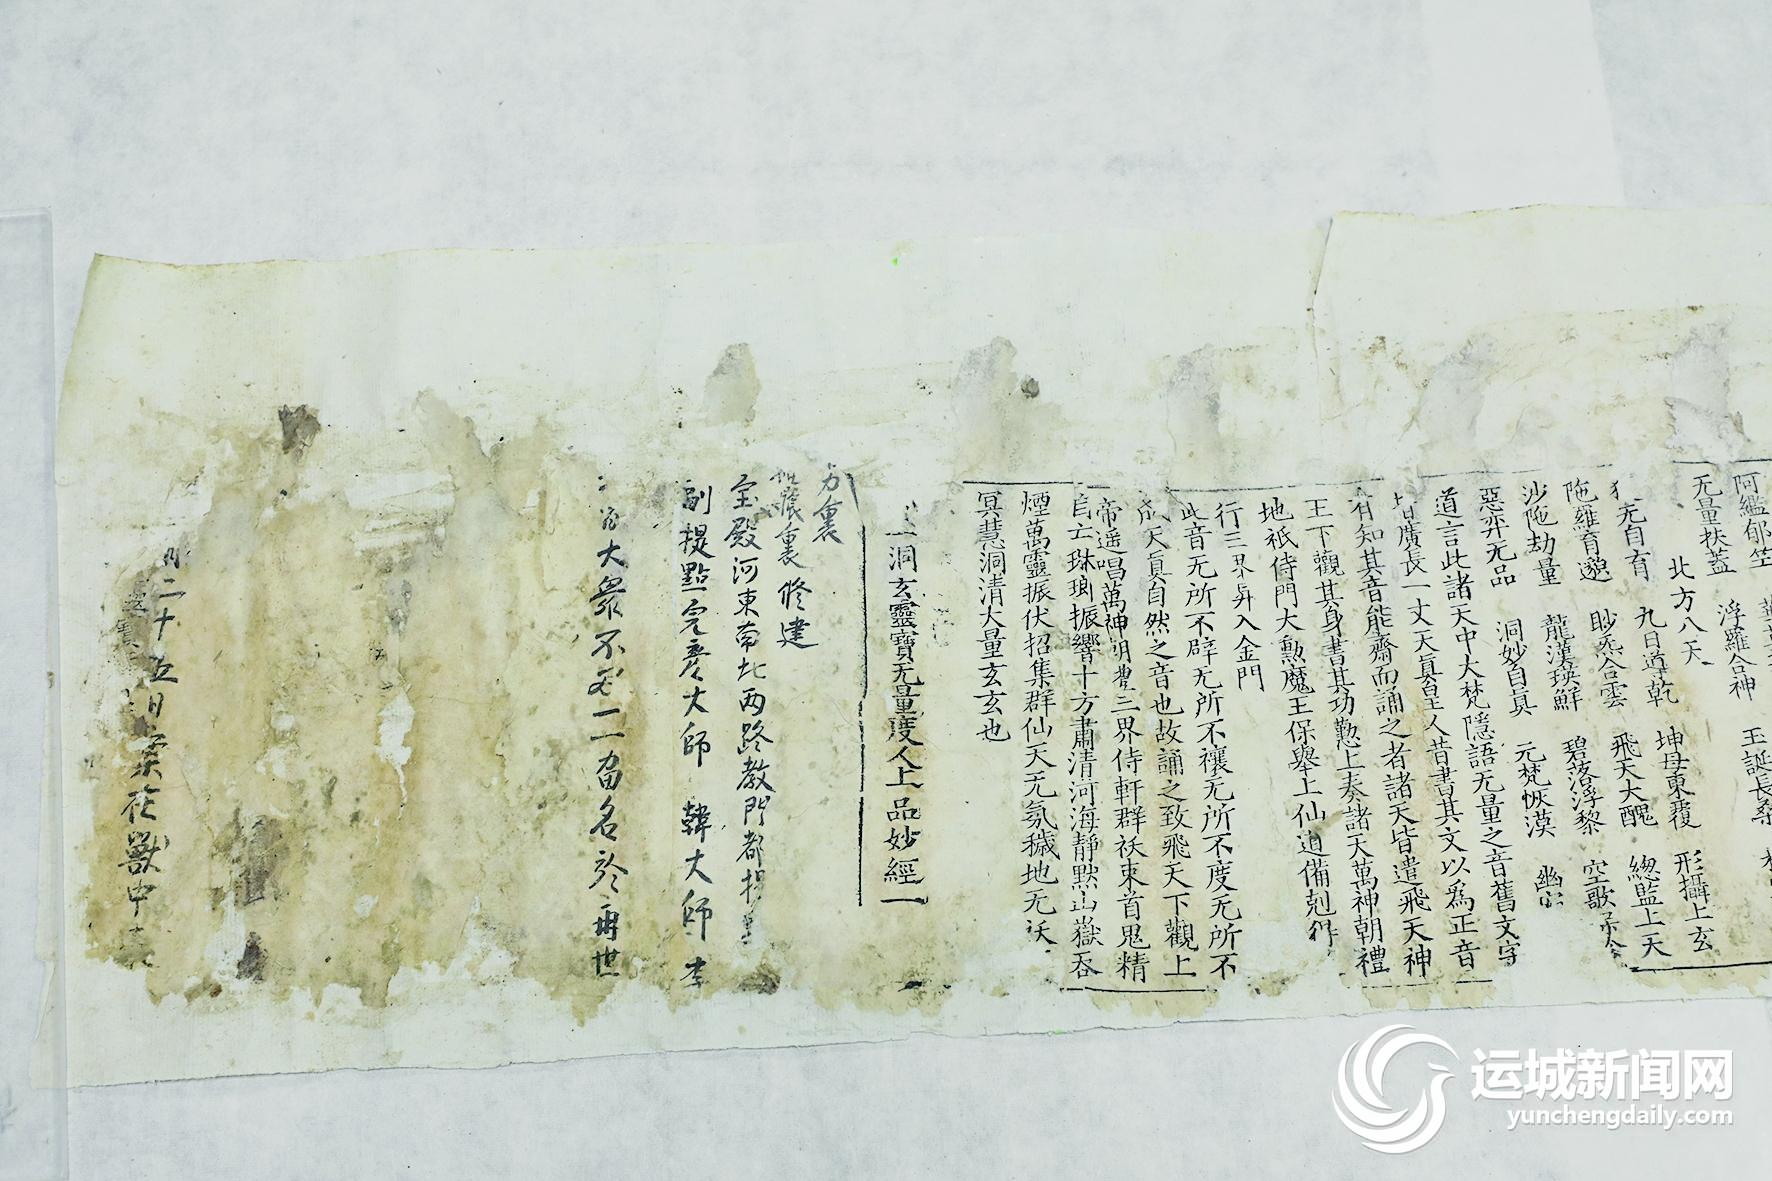 阿鑑郁竺 浮羅合神 玉誕長桑
无量扶蓋
北方八天
九日導乾 坤母東覆 形攝上玄
无自育 眇炁合雲 飛天大醜 總監上天
陁羅育邈 龍漢瑛鮮 碧落浮黎 空歌
沙陁劫量 洞妙自真 元梵恢漠 幽寂
惡弈无品
道言此諸天中大梵隱語无量之音舊文字
皆廣長一丈天真皇人昔書其文以為正音
有知其音能齋而誦之者諸天皆遣飛天神
王下觀其身書其功懃上奏諸天萬神朝禮
地祇侍門大勳魔王保舉上仙道備剋得
行三界昇入金門
此音无所不辟无所不禳无所不度无所不
成天真自然之音也故誦之致飛天下觀上
帝遥唱萬神朝禮三界侍軒群祅束首鬼精
自亡琳瑯振響十方肅清河海靜默山嶽吞
煙萬靈振伏招集群仙天无氛穢地无祅
冥慧洞清大量玄玄也
洞玄靈寶无量度人上品妙經一
裏
裏修建
宝殿河東南北两路教門都提
副提點 大師 韓大師 李
大衆不 一留名於再世
月二十五日 在獸中
运城新闻网
yunchengdaily.com